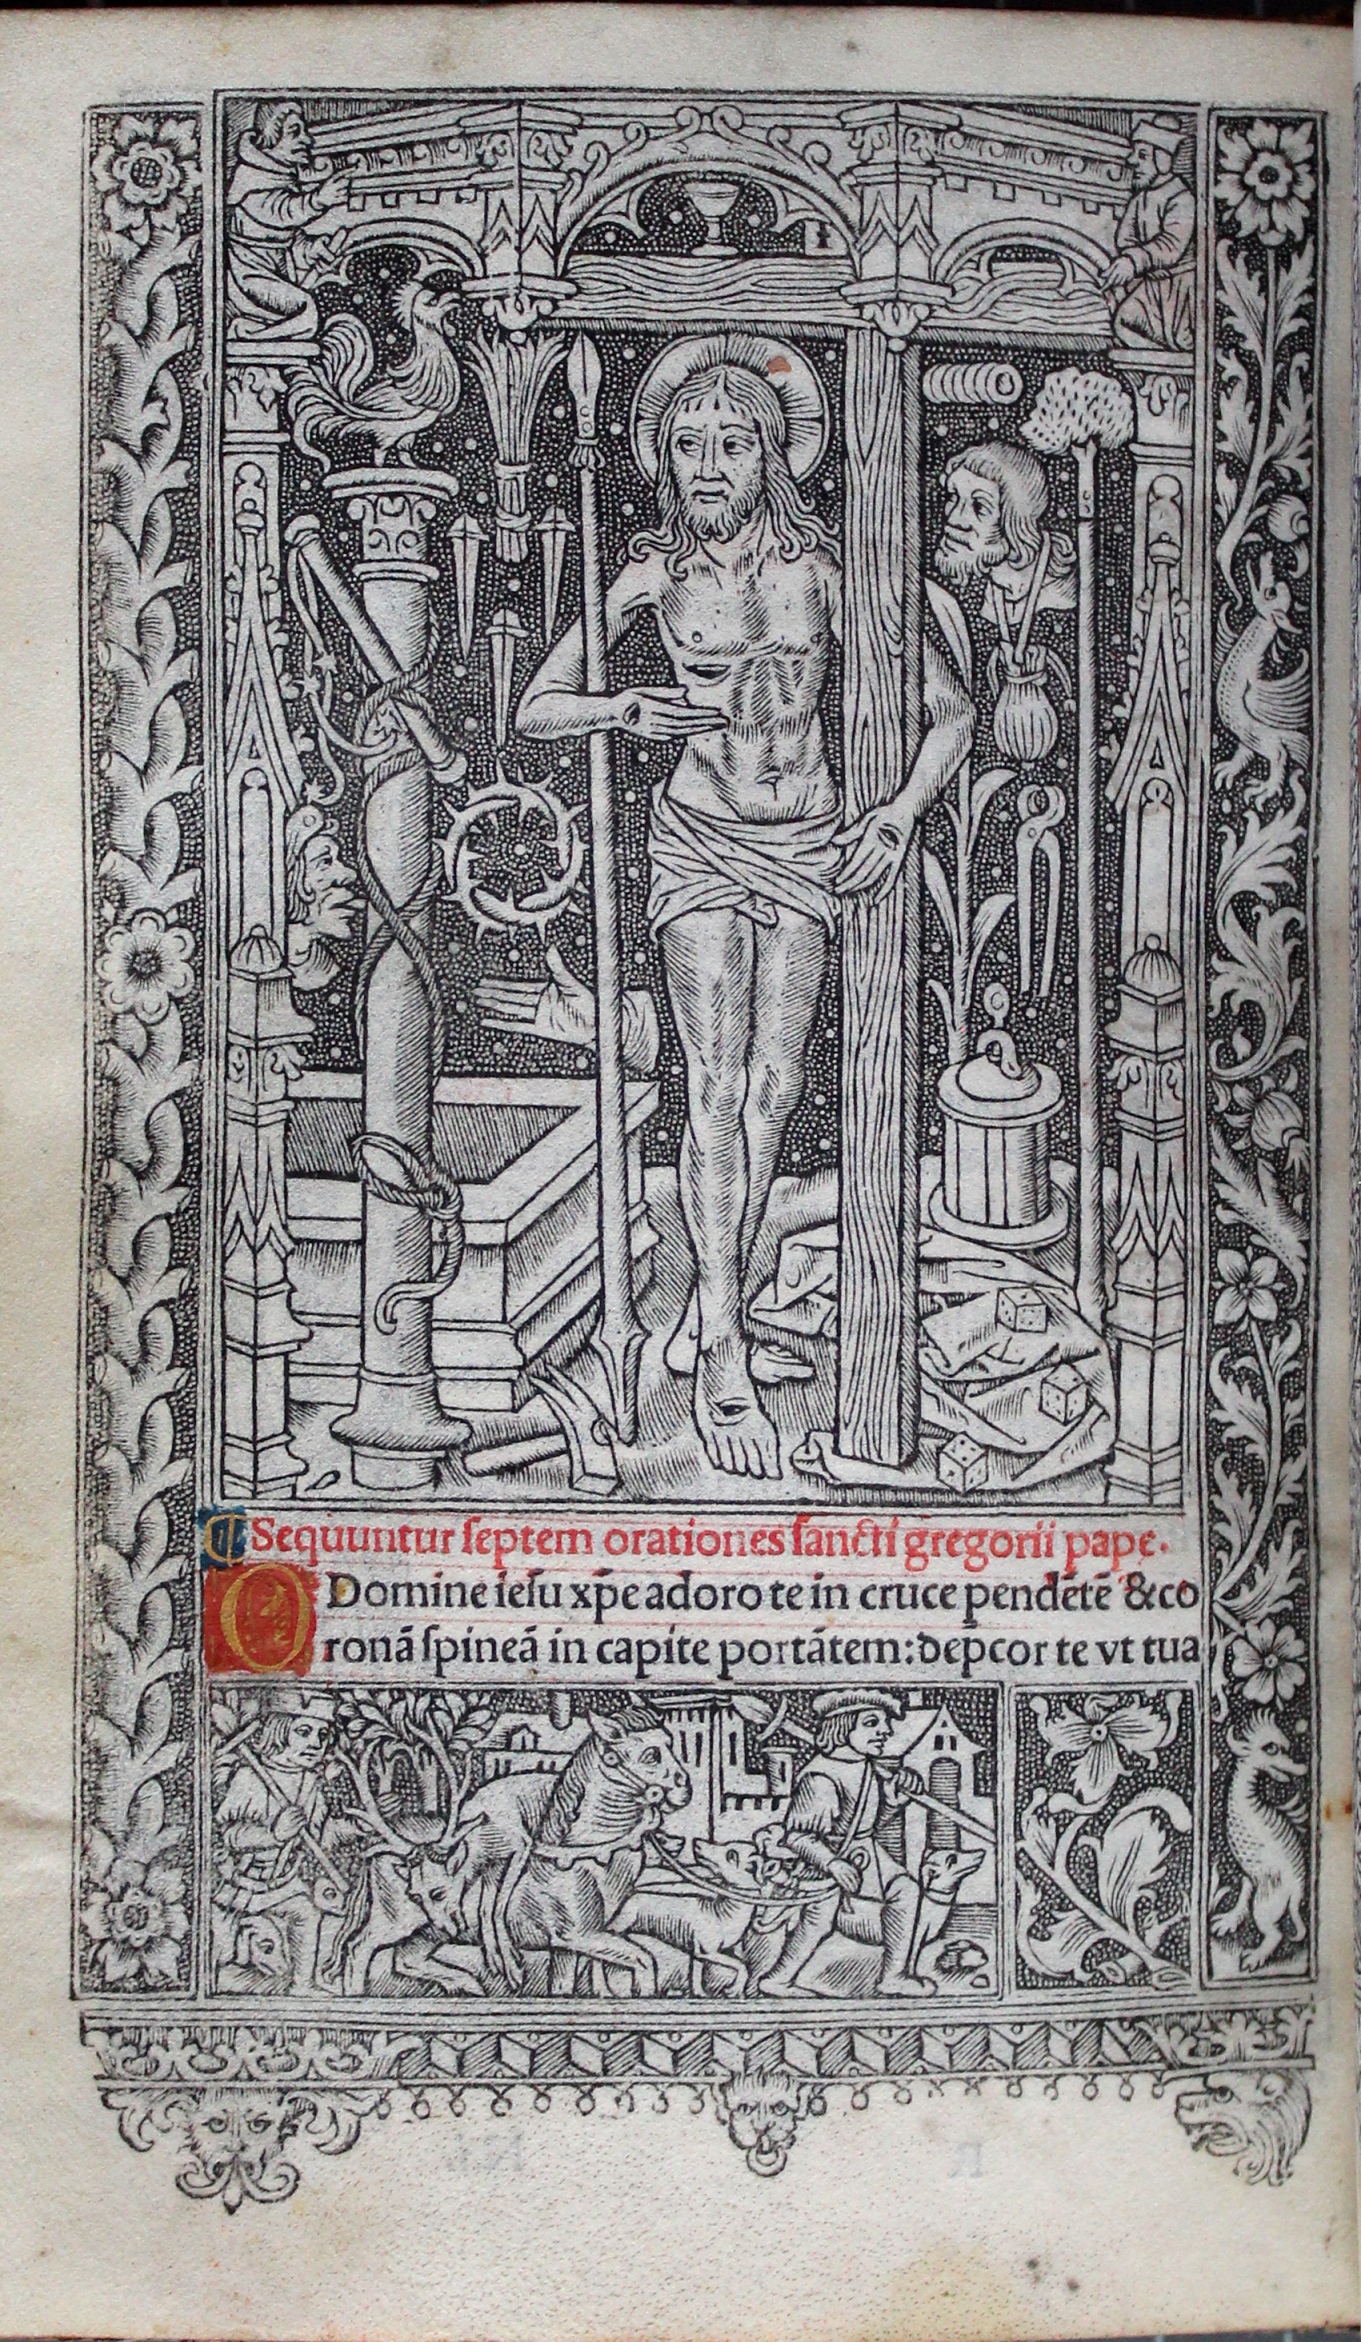 ¶ Sequuntur ſeptem orationes ſancti gregorii pape.
O Domine ieſu xp̄e adoro te in cruce pendētē & co
ronā ſpineā in capite portātem: dep̄cor te vt tua